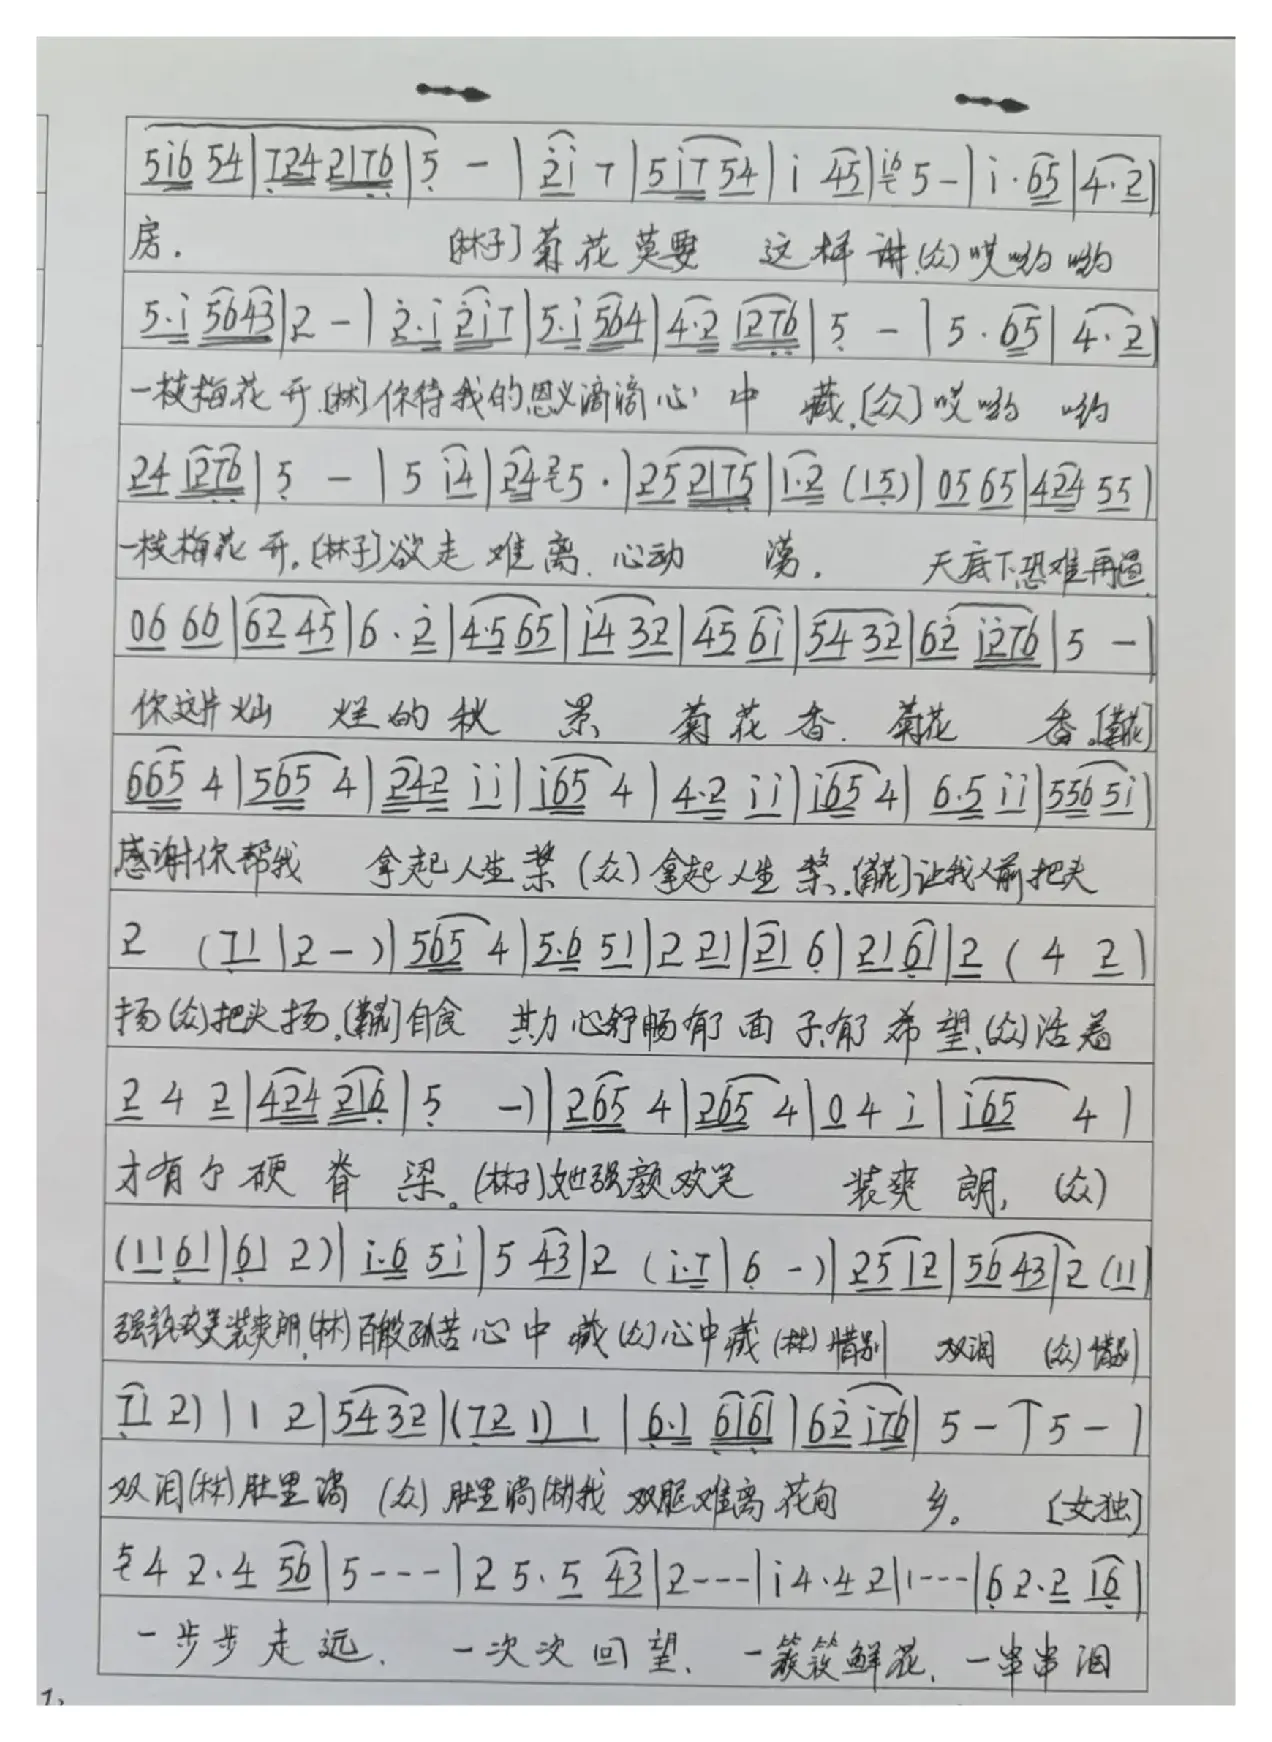 5i6 54|724 2176|5 - |2i 7|5i7 54|i 45|i6 5 -|i·65|4·2|
房. [林子]菊花莫要 这样讲.(众)哎哟哟
5·i 5643|2 -|2·i 2i7|5·i 564|4·2 1276|5 - |5·65|4·2|
一枝梅花开.[林]你待我的恩义滴滴心中 藏.(众)哎哟 哟
24 1276|5 - |5 i4|24 2 5·|25 2175|1·2 (15)|05 65|424 55|
一枝梅花开.[林子]欲走难离.心动 荡. 天底下恐难再逼.
06 66|62 45|6·2|4·5 65|i4 32|45 6i|54 32|62 i276|5 -|
你这片灿 烂的秋 景 菊花香.菊花 香.
665 4|565 4|242 ii|i65 4|4·2 ii|i65 4|6·5 ii|556 5i|
感谢你帮我 拿起人生桨(众)拿起人生桨.让我人前把头
2 (71|2 -)|565 4|5·6 51|2 21|21 6|21 61|2 (4 2)
扬(众)把头扬.自食 其力心舒畅有面子.有希望.(众)活着
2 4 2|424 216|5 -)|265 4|265 4|0 4 i|i65 4|
才有个硬脊梁.(林子)她强颜欢笑 装爽朗,(众)
(11 61|61 2)|i·6 5i|5 43|2 (i·7|6 -)|25 12|56 43|2 (11|
强颜欢笑装爽朗.(林)百般孤苦心中藏(众)心中藏(林)惜别 双泪 (众)惜别
71 2)|1 2|5432|(72 1) 1|6·1 6161|62 i76|5 - ↑5 -|
双泪(林)肚里淌 (众)肚里淌(林)我双腿难离花旬 乡. [女独]
5 4 2·4 56|5---|2 5·5 43|2---|i 4·4 2|1---|6 2·2 16|
一步步走远.一次次回望.一簇簇鲜花.一串串泪
1,